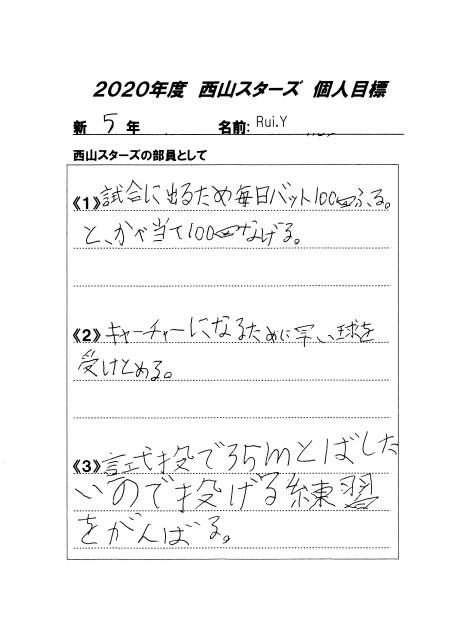 2020年度 西山スターズ 個人目標
新 5 年 名前: Rui.Y
西山スターズの部員として
《1》試合に出るため毎日バット100回ふる。
と、かべ当て100回なげる。
《2》キャーチャーになるために早い球を
受けとめる。
《3》試投で35mとばした
いので投げる練習
をがんばる。